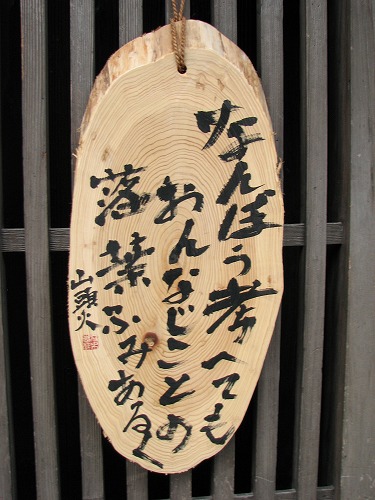 なんぼう考へても
おんなじことの
落葉ふみあるく
山頭火